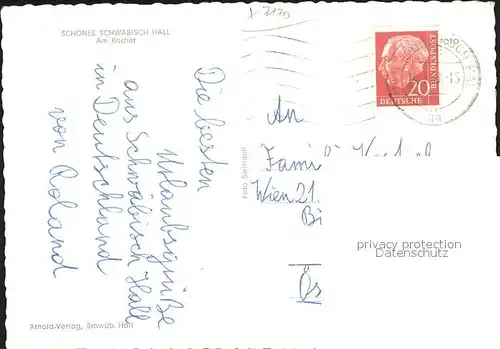 SCHÖNES SCHWÄBISCH HALL
Am Kocher
Die besten
Urlaubsgrüße
aus Schwäbisch-Hall
in Deutschland
von Roland
Arnold-Verlag, Schwäb. Hall
20
DEUTSCHE
BUNDESPOST
An
Wien 21
privacy protection
Datenschutz